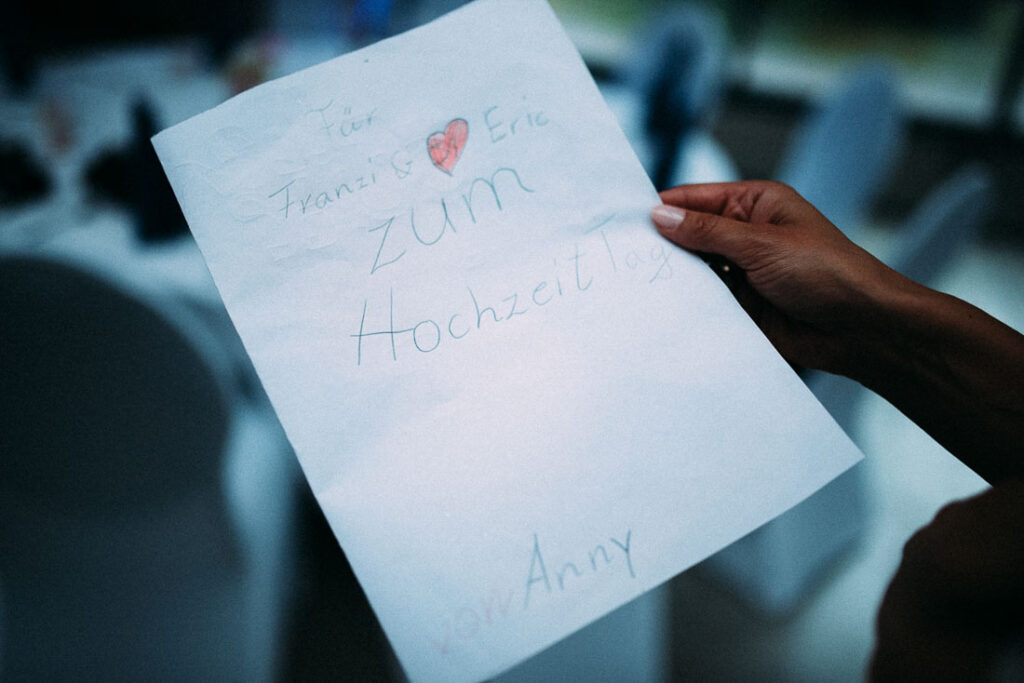 Für
Franzi & Eric
zum
Hochzeit Tag
von Anny